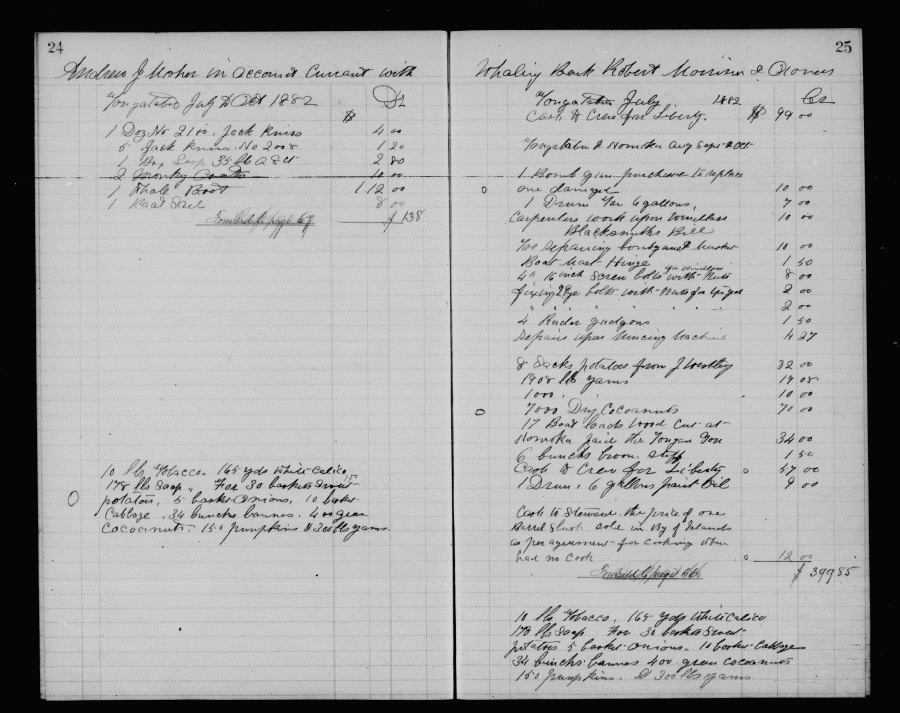 24
Andrew J Mosher in account Currant with
Tongatabu July & Oct 1882 Dr
$
1 Doz No 2100, Jack Knives 4 00
5 Jack Knives No 2008 1 20
1 Box Soap 35 lb @ 8 ct 2 80
2 Monkey Coats 10 00
1 Whale Boat 112 00
1 8 00
Forward to page 67 $ 138
10 lbs Tobacco, 165 yds White Calico
178 lbs Soap, For 30 baskets Sweet
potatoes, 5 basket Onions, 10 basket
Cabbage, 34 bunches bannas, 400 green
Cocoanuts, 150 pumpkins & 300 lbs yams
25
Whaling Bark Robert Morrison & Owners
Tongatabu July 1882 Cr
Cash to Crew for Liberty. $ 99 00
Tongatabu & Nomuka Aug Sept & Oct
1 Bomb gun purchased to replace
one damaged 10 00
1 Drum Tar 6 gallons, 7 00
Carpenters work upon Windlass 10 00
Blacksmiths Bill
For repairing bomb gun and Musket 10 00
Boat Mast Hinge 1 50
4 " 16 inch Screw bolts with Nuts for windlass 8 00
fixing 2 Eye bolts with Nuts for 2 00
" " " " " " 2 00
4 Rudor gudgons 1 50
Repairs upon Mincing Machine 4 27
8 Sacks potatoes from J Westley 32 00
1908 lbs yams 19 08
1000 " " 10 00
7000 Dry Cocoanuts 70 00
17 Boat loads Wood Cut at
Nomuka paid the Tongan Gov 34 00
6 bunches broom stuff 1 50
Cash to Crew for Liberty 57 00
1 Drum, 6 gallons paint Oil 9 00
Cash to Steward the price of one
Barrel Slush sold in Bay of Islands
as per agreement for cooking when
had no Cook 12 00
Forward to page 66 $ 399 85
10 lbs Tobacco, 165 yds White Calico
178 lbs Soap For 30 baskets Sweet
potatoes 5 basket onions, 10 basket Cabbage
34 bunches bannas 400 green cocoanuts
150 pumpkins, & 300 lbs yams